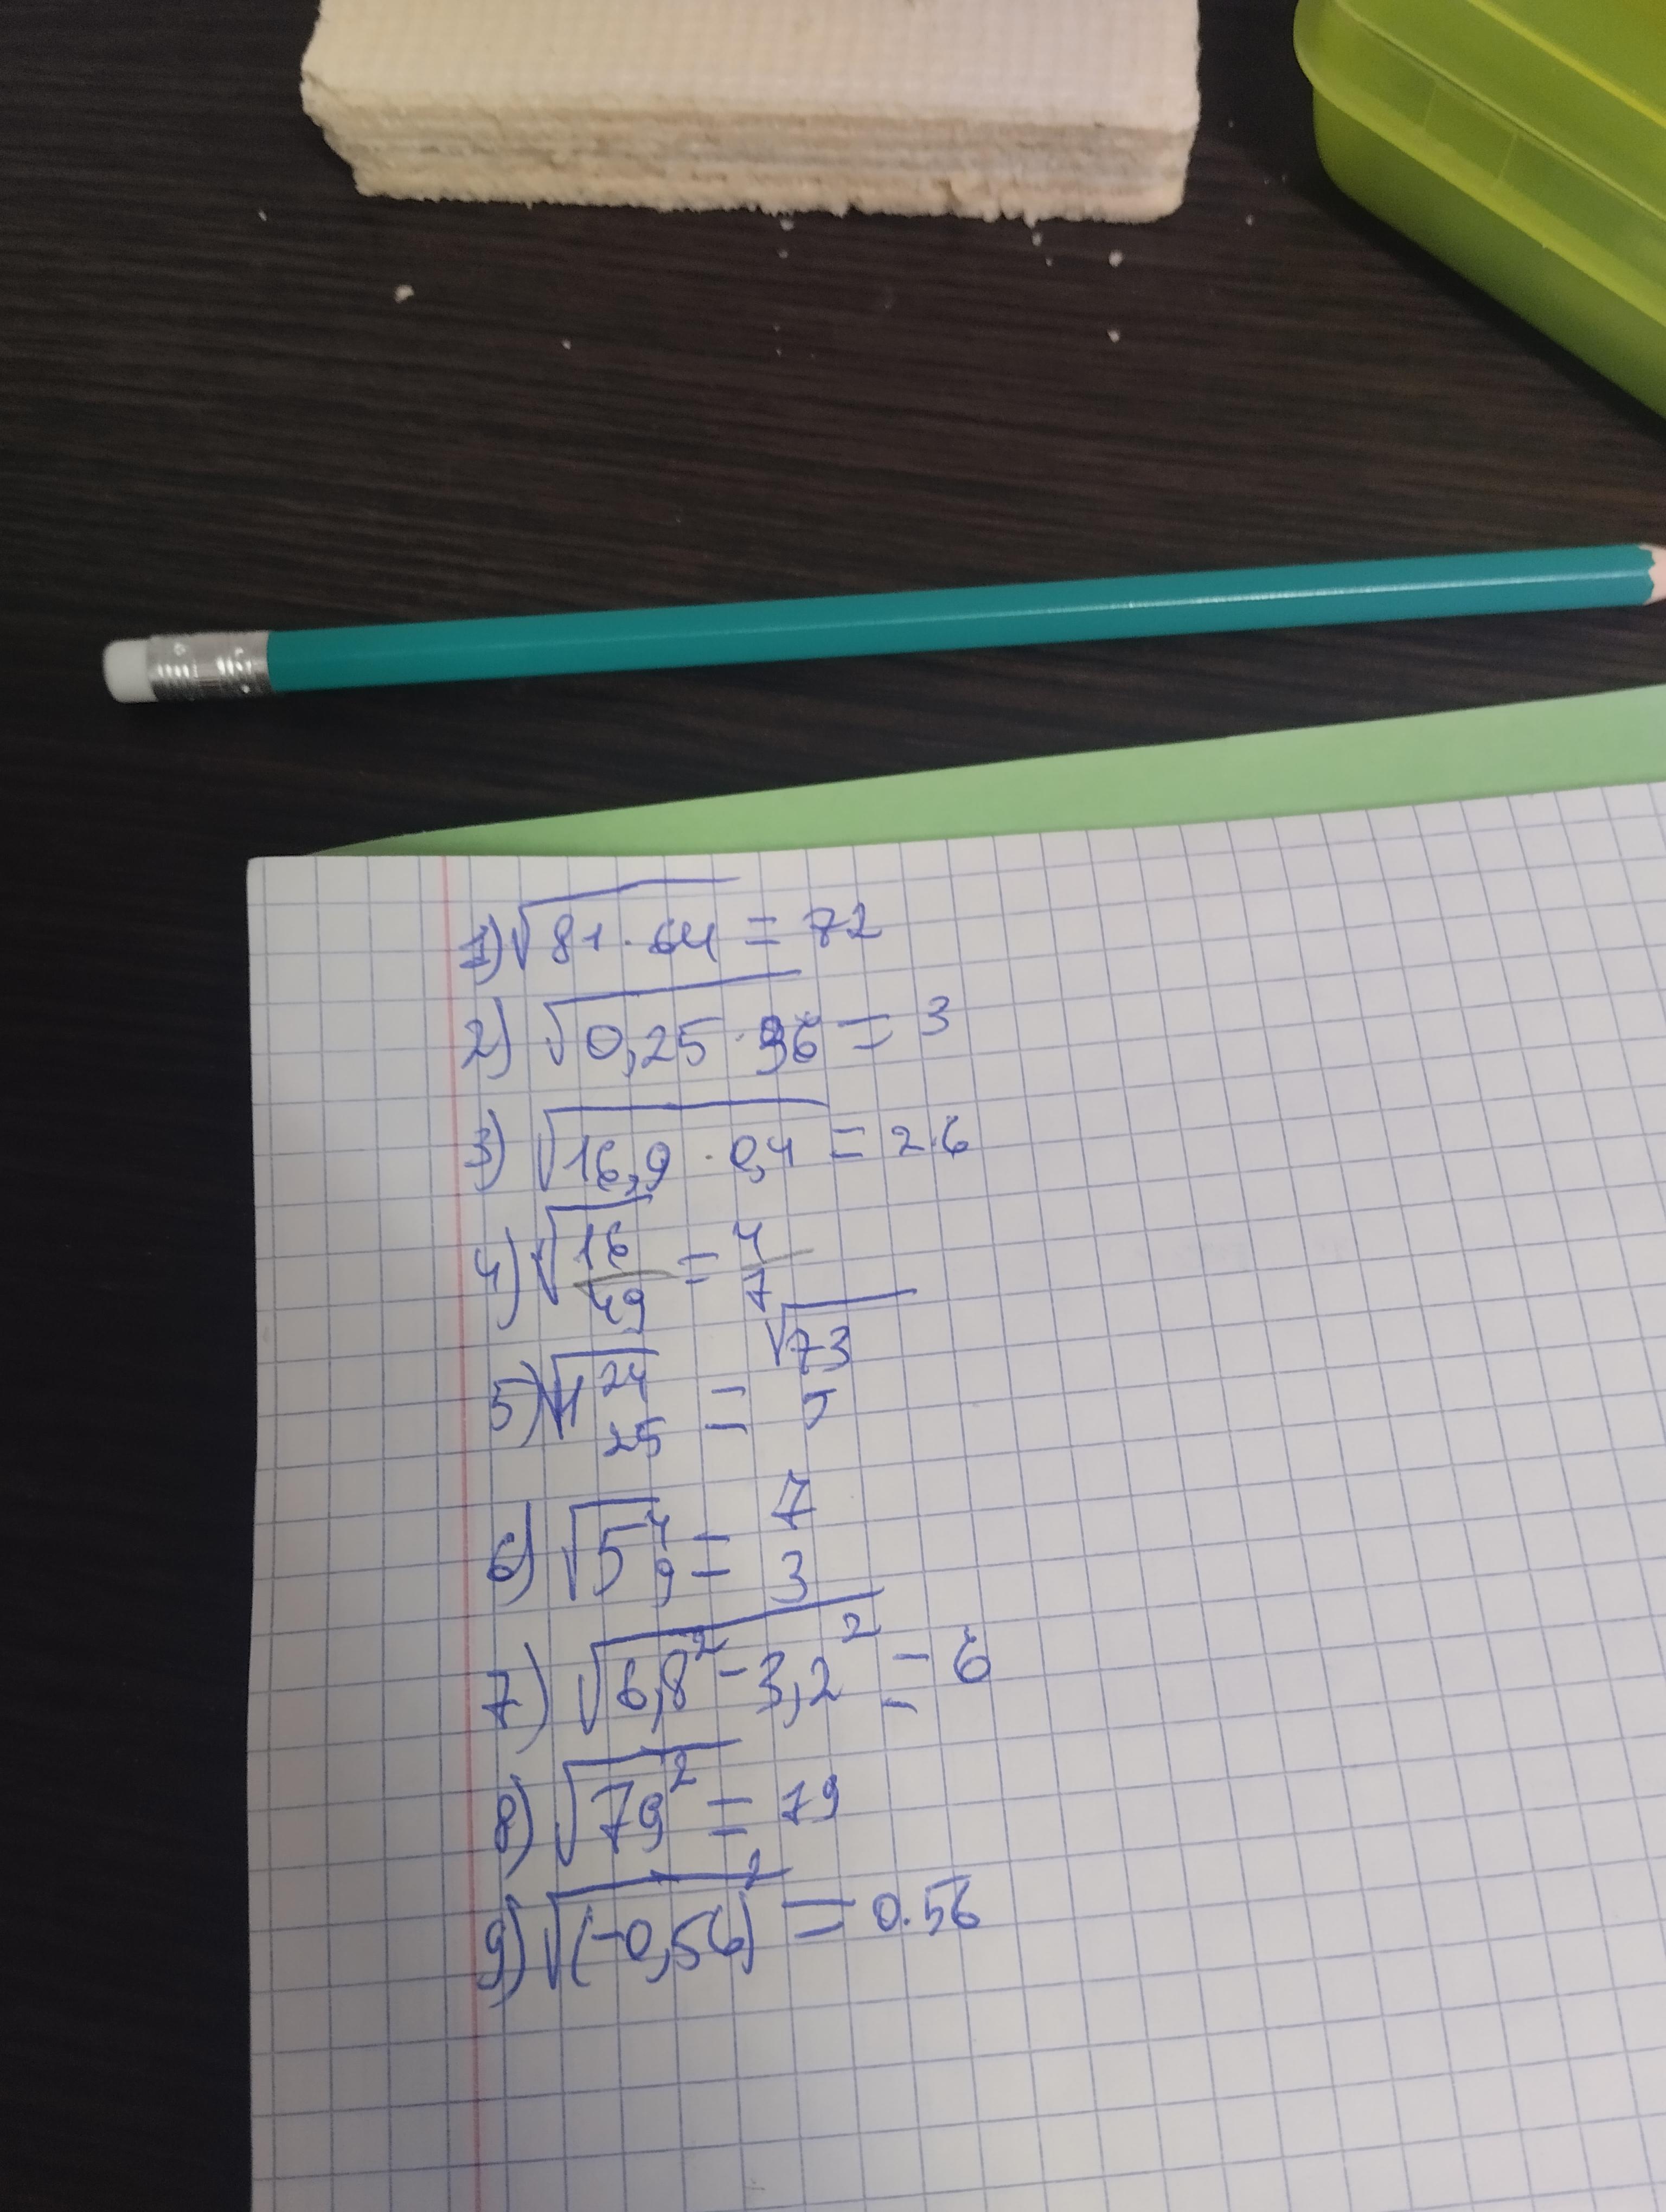 1) √81·64 = 72
2) √0,25·36 = 3
3) √16,9·0,4 = 2.6
4) √16/49 = 4/7
5) √1 24/25 = √73/5
6) √5 4/9 = 7/3
7) √6,8² - 3,2² = 6
8) √79² = 79
9) √(-0,56)² = 0.56